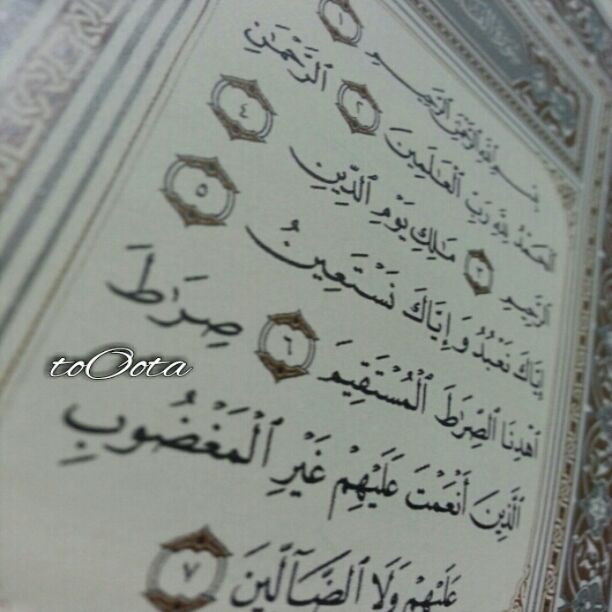 بِسْمِ ٱللَّهِ ٱلرَّحْمَٰنِ ٱلرَّحِيمِ ١
ٱلْحَمْدُ لِلَّهِ رَبِّ ٱلْعَٰلَمِينَ ٢ ٱلرَّحْمَٰنِ
ٱلرَّحِيمِ ٣ مَٰلِكِ يَوْمِ ٱلدِّينِ ٤
إِيَّاكَ نَعْبُدُ وَإِيَّاكَ نَسْتَعِينُ ٥
ٱهْدِنَا ٱلصِّرَٰطَ ٱلْمُسْتَقِيمَ ٦ صِرَٰطَ
ٱلَّذِينَ أَنْعَمْتَ عَلَيْهِمْ غَيْرِ ٱلْمَغْضُوبِ
عَلَيْهِمْ وَلَا ٱلضَّآلِّينَ ٧
toOota